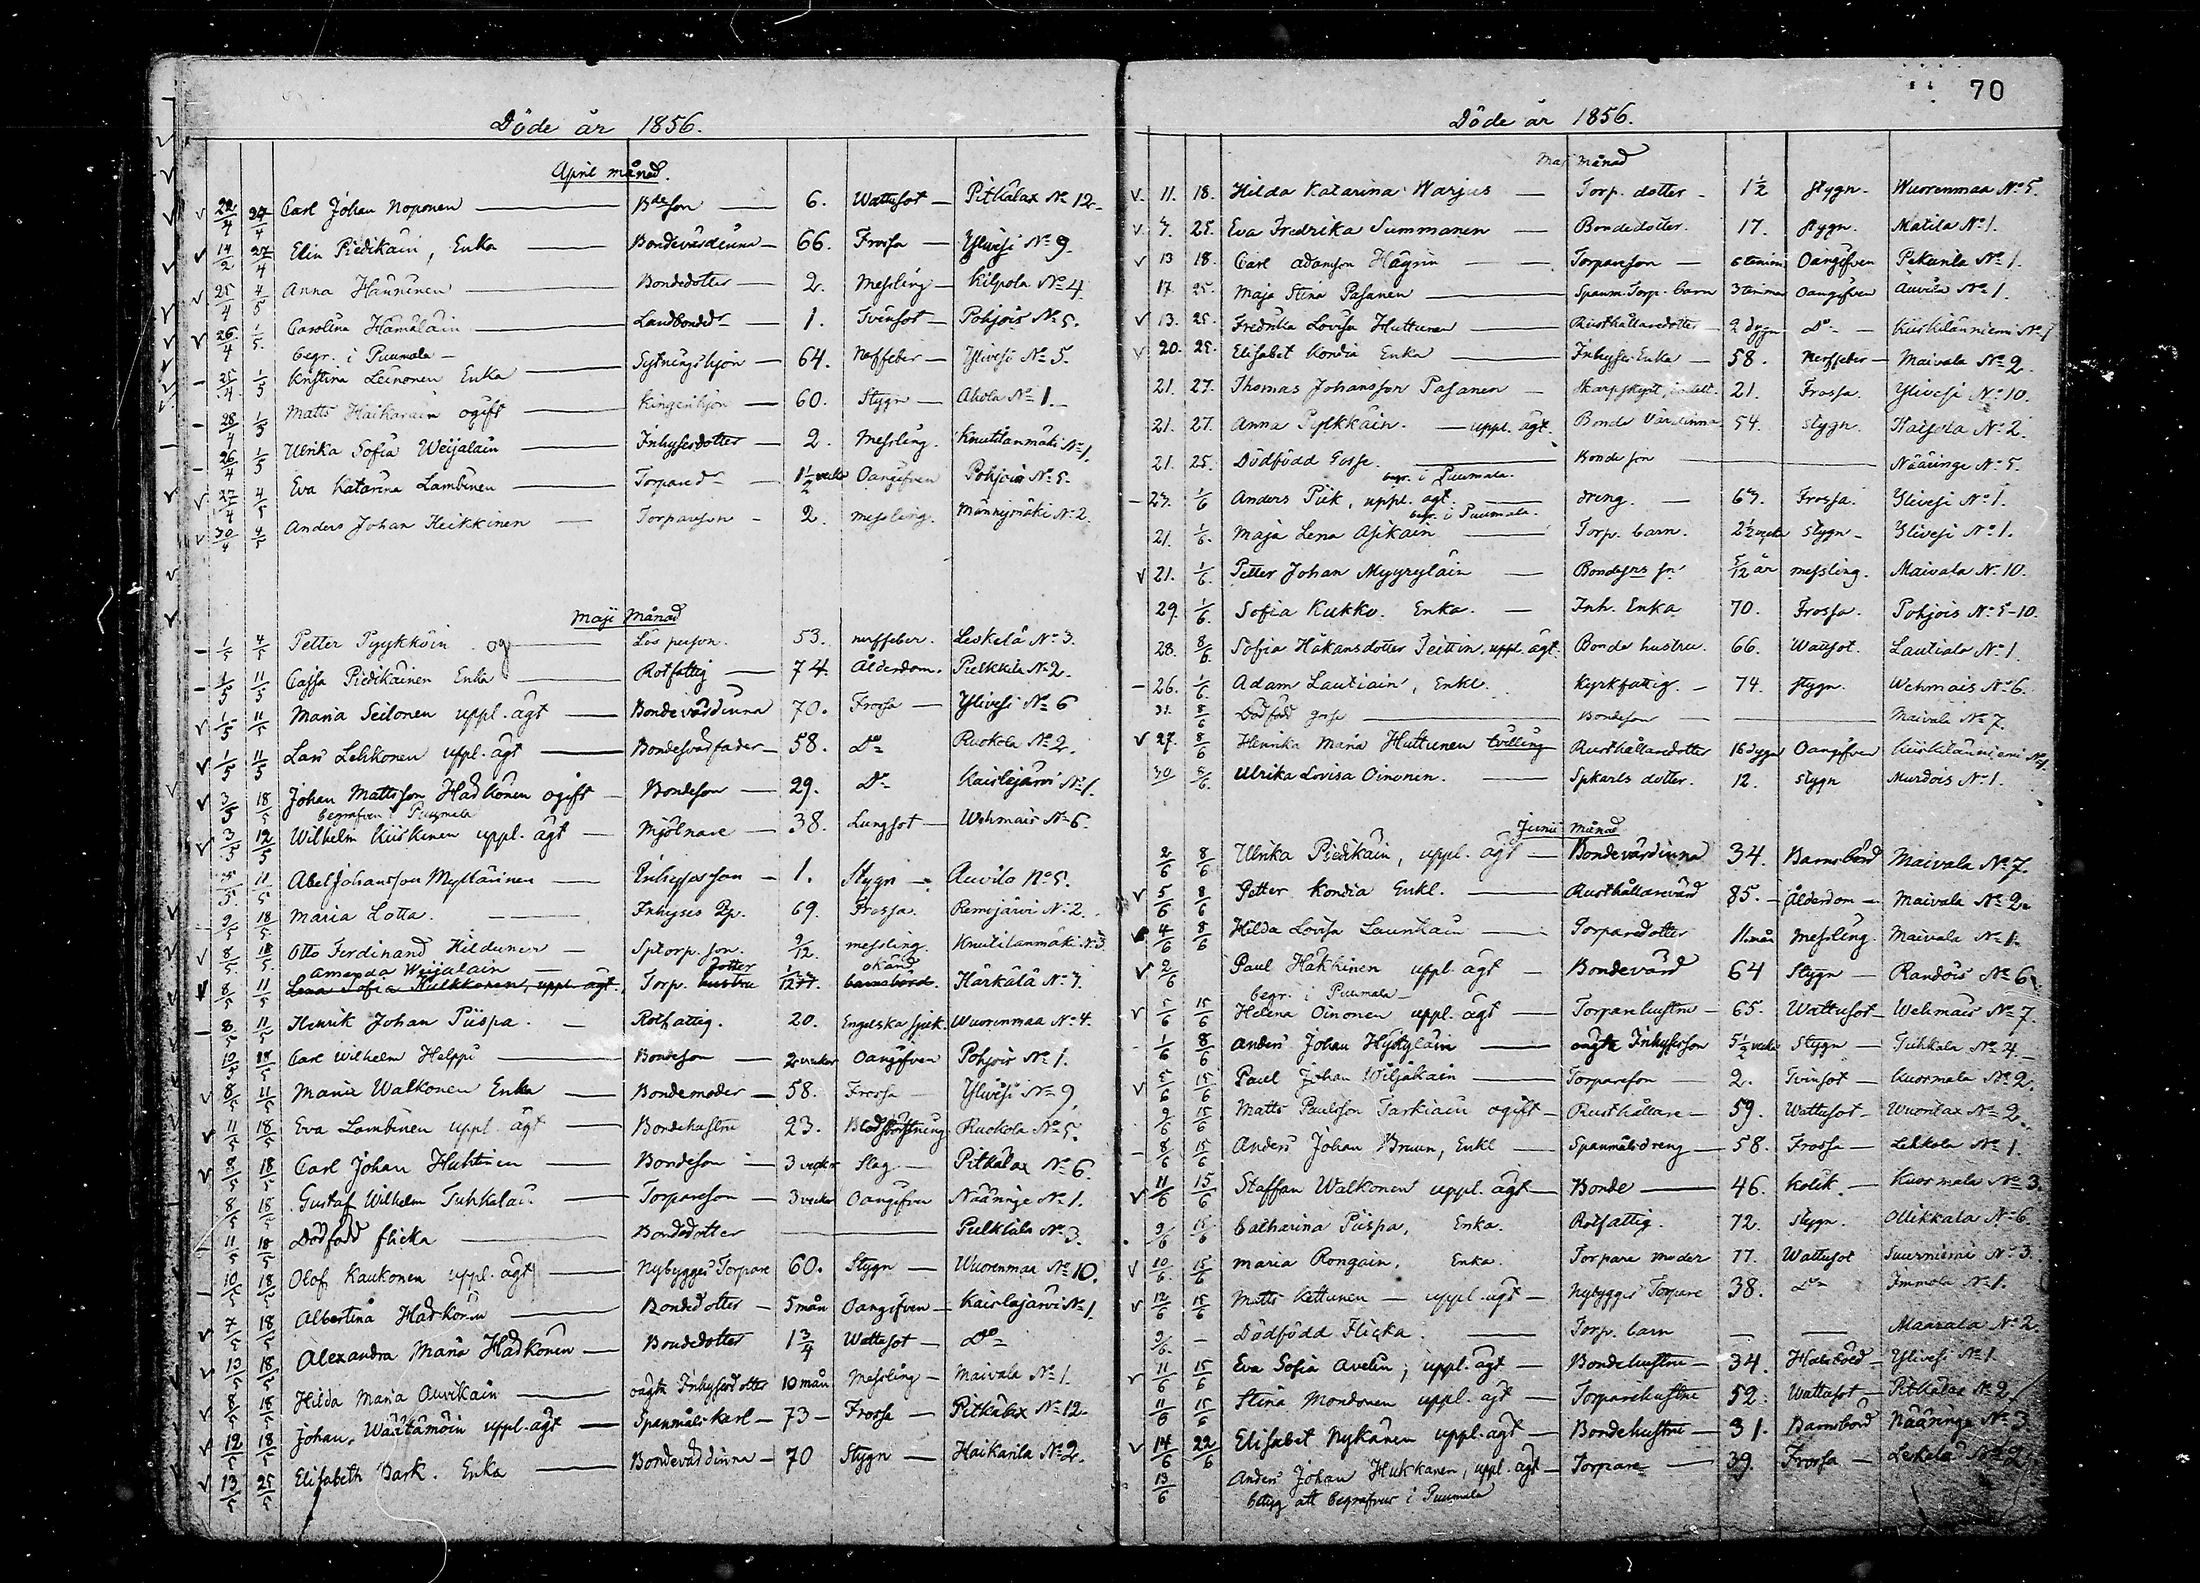 Döde år 1856.
April månad.
22/4 27/4 Carl Johan Noponen — Bde son — 6. Wattusot — Pitkälax No 12.
14/2 27/4 Elin Piedikäin, Enka — Bondevärdinna — 66. Frossa — Ylivesi No 9.
25/4 4/5 Anna Hänninen — Bondedotter — 2. Messling — Kilpola No 4.
26/4 1/5 Carolina Hämäläin — Landbonded — 1. Tvinsot — Pohjois No 5.
begr. i Puumala —
25/4 1/5 Kristina Leinonen Enka — Sytningshjon — 64. Nerffeber — Ylivesi No 5.
28/4 1/5 Matts Haikarain ogift — 60. Stygn — Ahola No 1.
26/4 1/5 Ulrika Sofia Weijalain — Inhysesdotter — 2. Messling. Knutilanmäki No 1.
27/4 4/5 Eva Katarina Lambinen — Torpared — 1 1/2 vecka Oangifven Pohjois No 5.
30/4 4/5 Anders Johan Heikkinen — Torpareson — 2. messling. Männynmäki No 2.
Maji Månad
1/5 4/5 Petter Pyykköin og — Lös person. 53. nerffeber. Leskelä No 3.
1/5 11/5 Cajsa Piedikäinen Enka — Rotfattig — 74. Ålderdom. Pulkkila No 2.
1/5 11/5 Maria Seilonen uppl. ägt — Bondevärdinna 70. Frossa — Ylivesi No 6
1/5 11/5 Lars Lehkonen uppl. ägt — Bondesvärfader — 58. Do Ruokola No 2.
3/5 18/5 Johan Mattsson Hadkonen ogift — Bondeson — 29. Do Kaislajärvi No 1.
begrafven i Puumala
3/5 12/5 Wilhelm Kiiskinen uppl. ägt — Mjölnare — 38. Lungsot — Wehmais No 6.
11/5 Abel Johansson Myllärinen — Inhysesson — 1. Stygn — Auvila No 5.
9/5 18/5 Maria Lotta. — Inhyses Pig. 69. Frossa. Remojärvi No 2.
8/5 18/5 Otto Ferdinand Hildunen — Sptorp. son. 9/12. messling. Knutilanmäki No 3
Amanda Weijalain — dotter okänd
8/5 11/5 Lena Sofia Kilkkonen, uppl. ägt. Torp. hustru barnsbörd. Härkälä No 3.
8/5 11/5 Henrik Johan Piispa. — Rotfattig. 20. Engelska sjuk. Wuorenmaa No 4.
12/5 18/5 Carl Wilhelm Helppi — Bondeson — 2 veckor Oangifven Pohjois No 1.
8/5 11/5 Maria Walkonen Enka — Bondemoder — 58. Frossa — Ylivesi No 9
11/5 18/5 Eva Lambinen uppl. ägt — Bondehustru 23. Blodstörtning Ruokola No 5.
8/5 18/5 Carl Johan Huhtinen — Bondeson — 3 veckor Slag — Pitkälax No 6.
8/5 18/5 Gustaf Wilhelm Tuhkalai — Torpareson — 3 veckor Oangifven Nääringe No 1.
11/5 18/5 Dödfödd flicka — Bondedotter — Pulkkila No 3.
10/5 18/5 Olof Kaukonen uppl. ägt — Nybygges Torpare 60. Stygn — Wuorenmaa No 10.
7/5 18/5 Albertina Hadkonen — Bondedotter — 5 mån Oangifven — Kaislajärvi No 1.
13/5 18/5 Alexandra Maria Hadkonen — Bondedotter 1 3/4 Wattusot — Do
8/5 18/5 Hilda Maria Auvikain — oägta Inhysesdotter 10 mån Messling — Maivala No 1.
12/5 18/5 Johan Wäätämöin uppl. ägt — Spanmåls karl — 73 — Frossa — Pitkälax No 12.
13/5 25/5 Elisabeth Bark. Enka — Bondevärdinna — 70 Stygn — Haikarila No 2.
70
Döde år 1856.
Maj månad
11. 18. Hilda Katarina Warjus — Torp. dotter — 1 1/2 stygn. Wuorenmaa No 5.
7. 25. Eva Fredrika Summanen — Bondedotter. 17. stygn. Matila No 1.
13 18. Carl Adamson Hägrin — Torpareson — 6 timmar Oangifven Pekurila No 1.
17. 25. Maja Stina Pasanen — Spanm. Torp. barn 3 timmar Oangifven Auvila No 1.
13. 25. Fredrika Lovisa Huttunen — Rusthållaredotter — 2 dygn Do — Kiiskilänniemi No 1
20. 25. Elisabet Kondia Enka — Inhyses Enka — 58. Nerffeber — Maivala No 2.
21. 27. Thomas Johansson Pasanen — Skarpskytt, indelt. 21. Frossa. Ylivesi No 10.
21. 27. Anna Pylkkäin. — uppl. ägt. Bonde Värdinna 54. Stygn. Kaipola No 2.
21. 25. Dödfödd Gosse. — Bonde son — Nääringe No 5.
begr. i Puumala.
23. 1/6 Anders Piik, uppl. ägt. — dreng. — 63. Frossa. Ylivesi No 1.
begr. i Puumala.
21. 1/6. Maja Lena Asikain — Torp. barn. 2 1/2 vecka Stygn — Ylivesi No 1.
21. 1/6. Petter Johan Myyryläin — Bondesns sn 5/12 år messling. Maivala No 10.
29. 1/6 Sofia Kukko. Enka. — Inh. Enka 70. Frossa. Pohjois No 5-10.
28. 8/6 Sofia Håkansdotter Teittin, uppl. ägt. Bonde hustru. 66. Wattusot. Lautiala No 1.
26. 1/6 Adam Lautiain, Enkl. Kyrkfattig. — 74. stygn. Wehmais No 6.
31. 8/6 Dödfödd gosse — Bondeson — Maivala No 7.
27. 8/6 Henrika Maria Huttunen tvilling Rusthållaredotter 16 dygn Oangifven Kiiskilänniemi No 1
30 8/6. Ulrika Lovisa Oinonen. — Spkarls dotter. 12. stygn Murdois No 1.
Junii Månad
2/6 8/6 Ulrika Piedikäin, uppl. ägt — Bondevärdinna 34. Barnsbörd Maivala No 7.
5/6 8/6 Petter Kondia Enkl. — Rusthållarevärd 85. — Ålderdom — Maivala No 2.
4/6 8/6 Hilda Lovisa Launkain — Torparedotter 11 mån Messling. Maivala No 1.
2/6 Paul Häkkinen uppl. ägt — Bondevärd 64 Stygn — Randois No 6.
begr. i Puumala —
5/6 15/6 Helena Oinonen uppl. ägt — Torparehustru — 65. Wattusot — Wehmais No 7.
1/6 8/6 Anders Johan Hyötyläin — oägta Inhysesson 5 1/2 vecka Stygn — Tuhkala No 4.
5/6 15/6 Paul Johan Wiljakain — Torpareson — 2. Tvinsot — Kuormala No 2.
9/6 15/6 Matts Paulsson Tarkiain ogift — Rusthållare — 59. Wattusot — Wuorilax No 2.
8/6 15/6 Anders Johan Bruun, Enkl — Spanmålsdreng — 58. Frossa — Lehkola No 1.
11/6 15/6 Staffan Walkonen uppl. ägt — Bonde — 46. Kolik. — Kuormala No 3.
9/6 15/6 Catharina Piispa, Enka. Rotfattig. 72. Stygn. Ollikkala No 6
10/6. 15/6 Maria Rongain, Enka. Torpare moder 77. Wattusot Suurniemi No 3.
12/6 15/6 Matts Kettunen — uppl. ägt — Nybygges Torpare 38. Do Immola No 1.
9/6. — Dödfödd Flicka. — Torp. barn — — Maarala No 2.
11/6 15/6 Eva Sofia Avelin, uppl. ägt — Bondehustru — 34. Ylivesi No 1.
11/6 15/6 Stina Mondonen uppl. ägt — Torparehustru 52. Wattusot — Pitkälax No 2
14/6 22/6 Elisabet Nykänen uppl. ägt — Bondehustru — 31. Barnsbörd Nääringe No 3
13/6 Anders Johan Hukkanen, uppl. ägt — Torpare — 39. Frossa — Leskelä No 2
betyg att begrafvas i Puumala